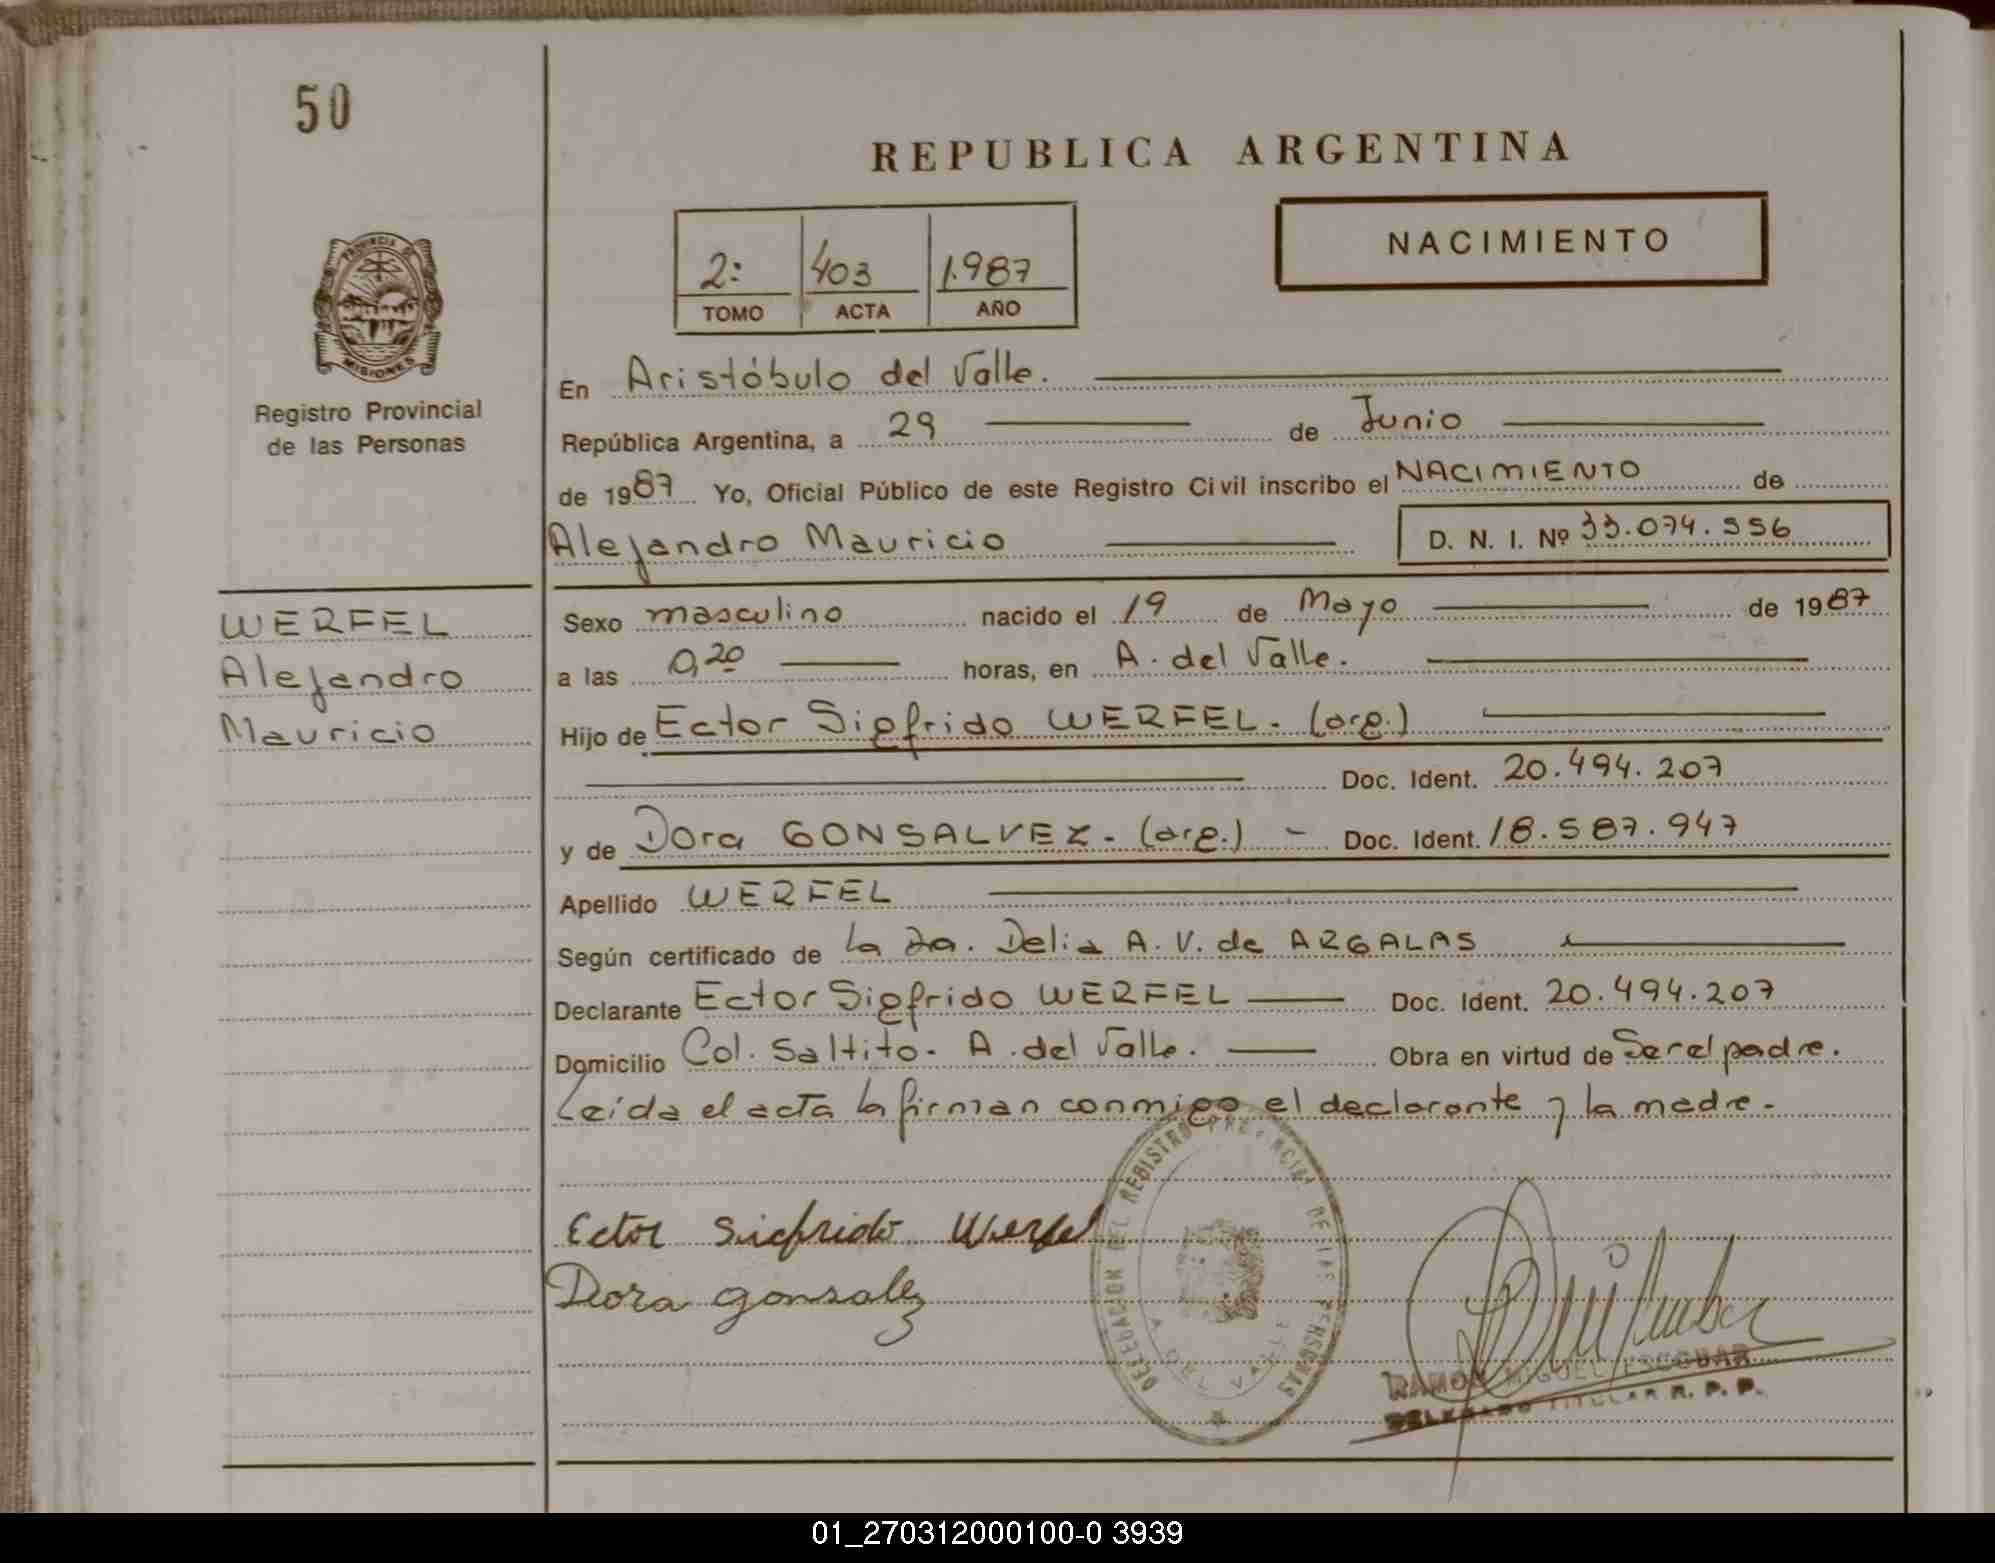 50
REPUBLICA ARGENTINA
NACIMIENTO
2: 403 1.987
TOMO ACTA AÑO
PROVINCIA DE
MISIONES
Registro Provincial
de las Personas
En Aristóbulo del Valle.
República Argentina, a 29 de Junio
de 1987 Yo, Oficial Público de este Registro Civil inscribo el NACIMIENTO de
Alejandro Mauricio D. N. I. Nº 33.074.556
WERFEL
Alejandro
Mauricio
Sexo masculino nacido el 19 de Mayo de 1987
a las 0,20 horas, en A. del Valle.
Hijo de Ector Sigfrido WERFEL. (arg.)
Doc. Ident. 20.494.207
y de Dora GONSALVEZ. (arg.) - Doc. Ident. 18.587.947
Apellido WERFEL
Según certificado de la Da. Delia A. V. de ARGALAS
Declarante Ector Sigfrido WERFEL Doc. Ident. 20.494.207
Domicilio Col. Saltito. A. del Valle. Obra en virtud de Ser el padre.
Leída el acta la firman conmigo el declarante y la madre.
Ector Sicfrido Werfel
Dora gonsalez
DELEGACION DEL REGISTRO PROVINCIAL DE LAS PERSONAS
A. DEL VALLE
RAMON MIGUEL ESCOBAR
DELEGADO TITULAR R. P. P.
01_270312000100-0 3939